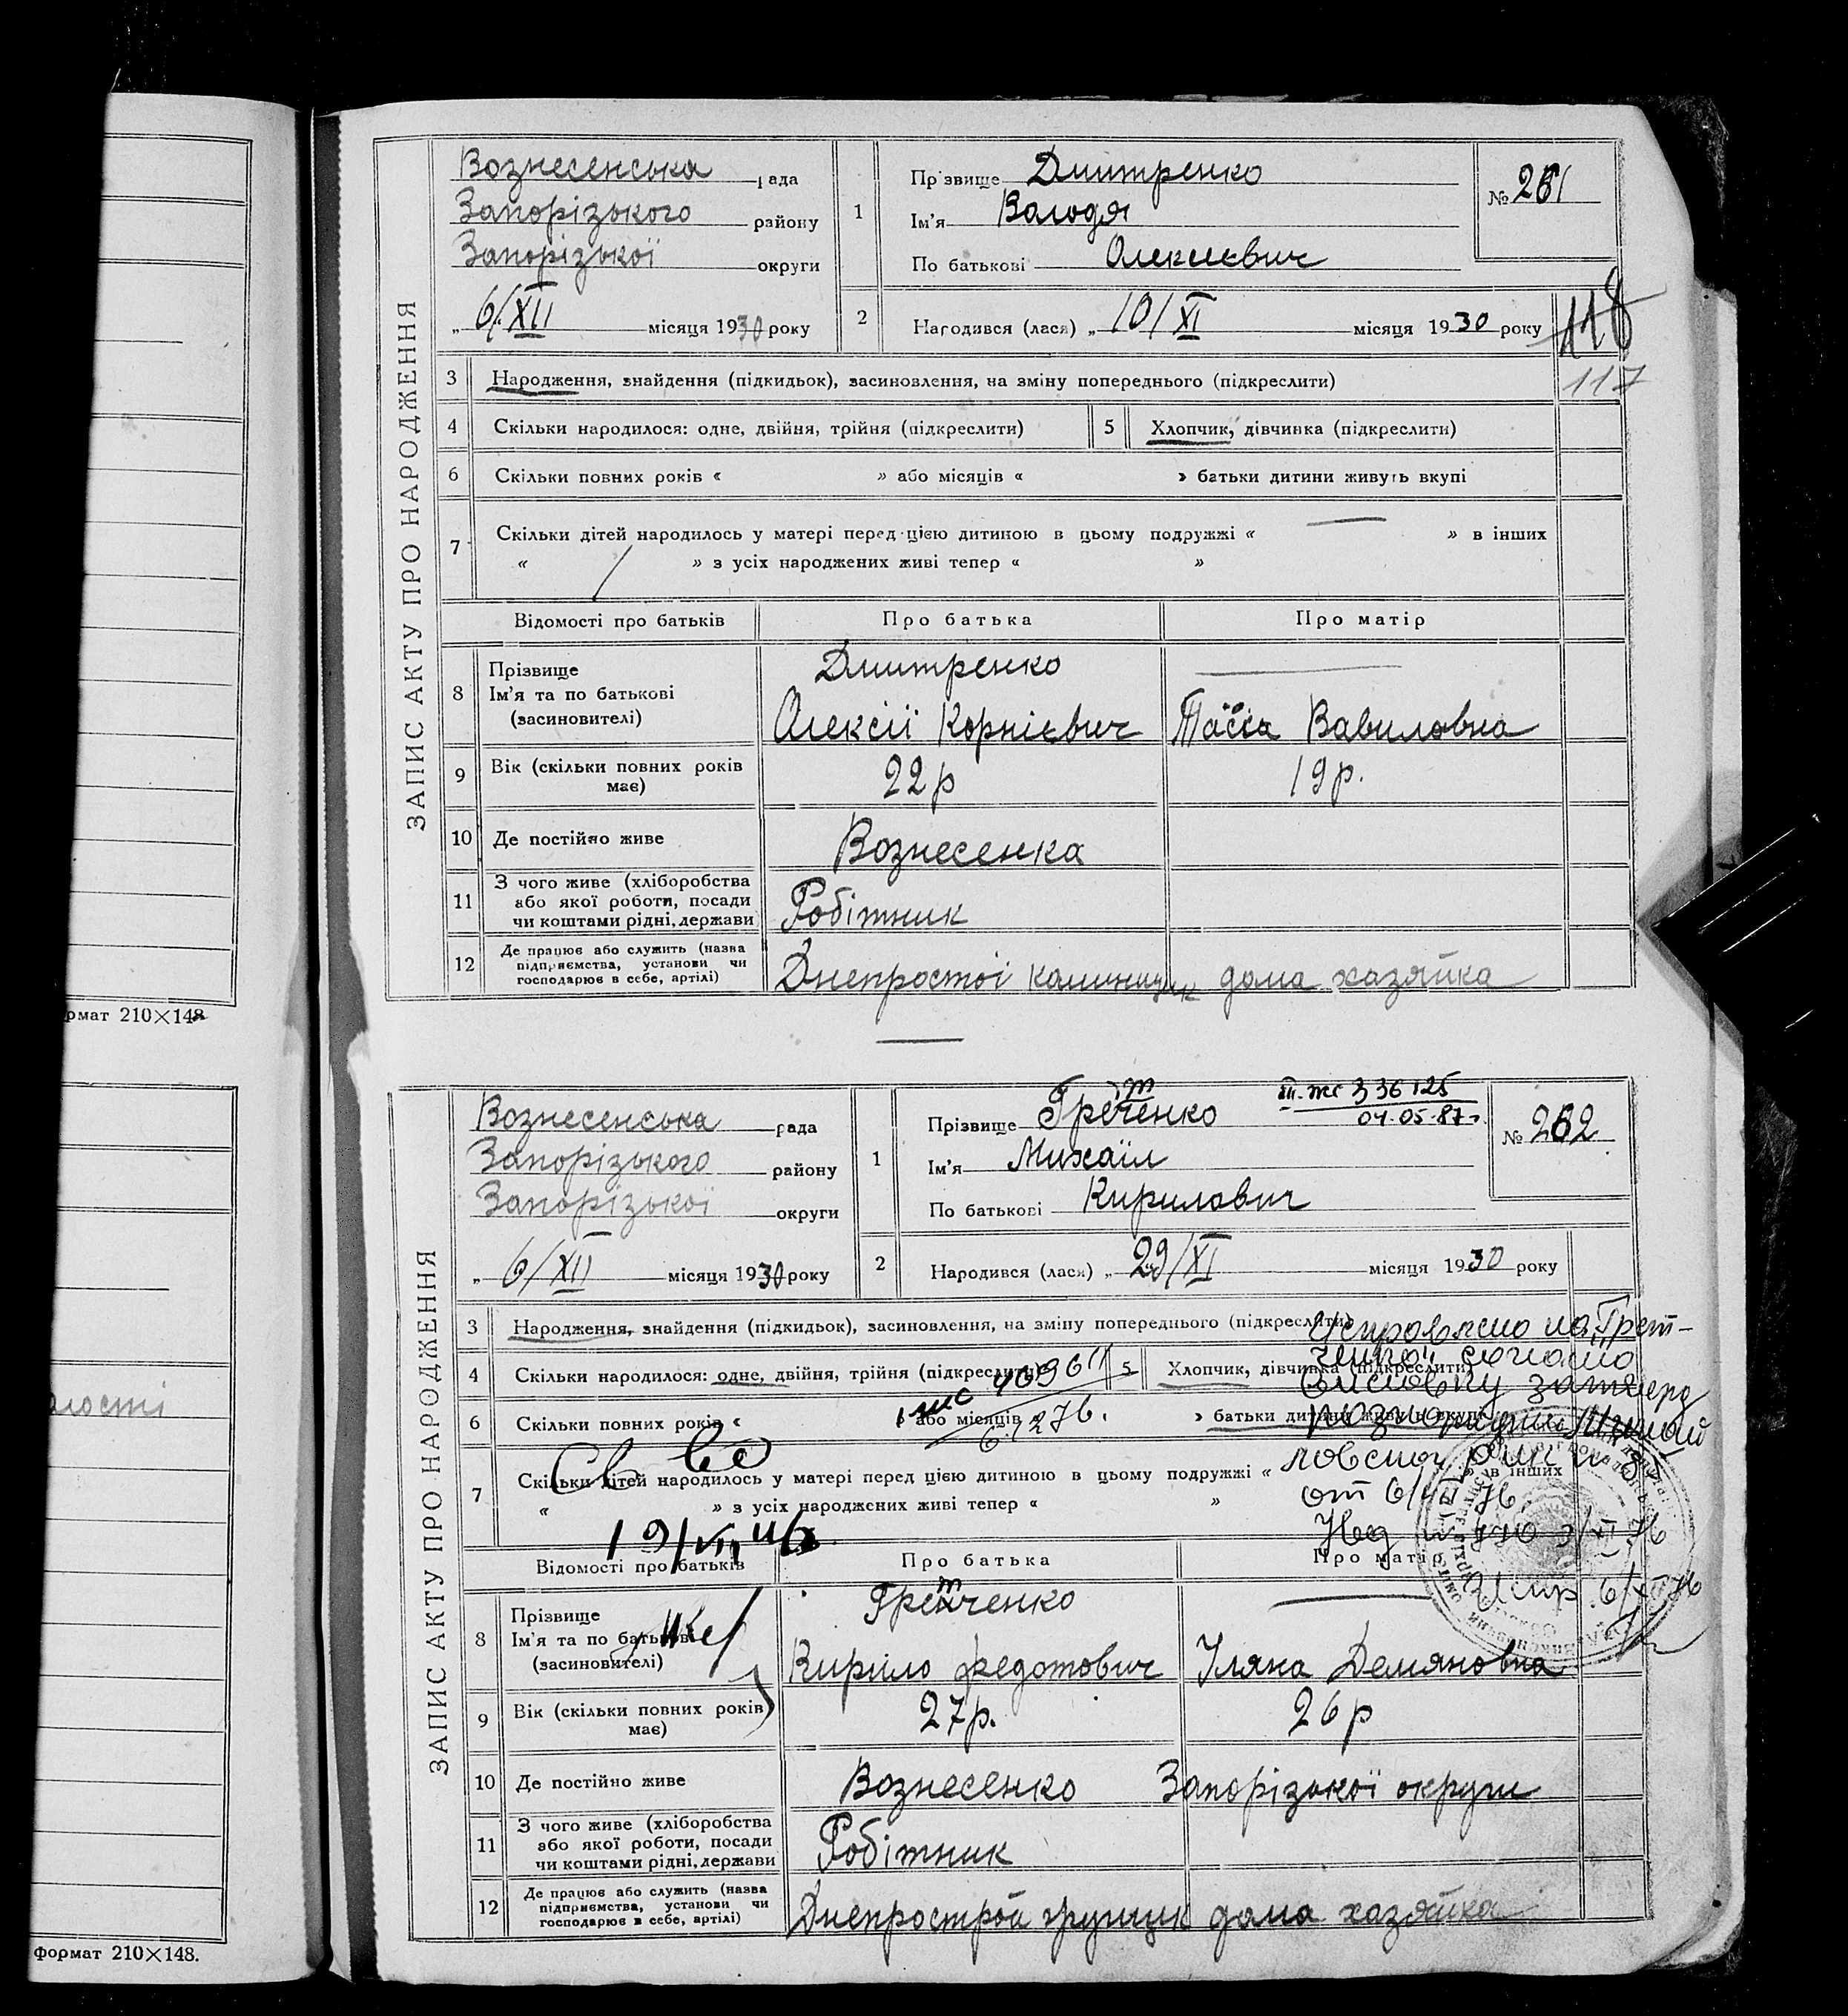 ЗАПИС АКТУ ПРО НАРОДЖЕННЯ
Вознесенська рада
Запорізького району
Запорізької округи
„ 6/XII місяця 1930 року
1
Прізвище Дмитренко
Ім'я Володя
По батькові Олексієвич
№ 261
2
Народився (лася) „ 10/XI місяця 1930 року
118
117
3 Народження, знайдення (підкидьок), засиновлення, на зміну попереднього (підкреслити)
4 Скільки народилося: одне, двійня, трійня (підкреслити)
5 Хлопчик, дівчинка (підкреслити)
6 Скільки повних років « » або місяців « » батьки дитини живуть вкупі
7 Скільки дітей народилось у матері перед цією дитиною в цьому подружжі « — » в інших
« » з усіх народжених живі тепер « »
Відомості про батьків Про батька Про матір
8 Прізвище
Ім'я та по батькові
(засиновителі)
Дмитренко
Олексії Корнієвич Таїса Вавиловна
9 Вік (скільки повних років має) 22р 19р.
10 Де постійно живе Вознесенка
11 З чого живе (хліборобства
або якої роботи, посади
чи коштами рідні, держави
Робітник
12 Де працює або служить (назва
підприємства, установи чи
господарює в себе, артілі)
Днепростої каминщик дома хазяйка
ЗАПИС АКТУ ПРО НАРОДЖЕННЯ
Вознесенська рада
Запорізького району
Запорізької округи
„ 6/XII місяця 1930 року
1
Прізвище Греченко
т
III-жс 336125
04.05.87г.
Ім'я Михаїл
По батькові Кирилович
№ 262
2
Народився (лася) „ 29/XI місяця 1930 року
3 Народження, знайдення (підкидьок), засиновлення, на зміну попереднього (підкреслити)
4 Скільки народилося: одне, двійня, трійня (підкреслити)
5 Хлопчик, дівчинка (підкреслити)
6 Скільки повних років « » або місяців » батьки дитини живуть вкупі
7 Скільки дітей народилось у матері перед цією дитиною в цьому подружжі « » в інших
« » з усіх народжених живі тепер « »
Исправлено на „Грет-
ченко" согласно
от 6/XII 76
Відомості про батьків Про батька Про матір
8 Прізвище
Ім'я та по батькові
(засиновителі)
Гретченко
Кирило Федотович Уляна Демяновна
9 Вік (скільки повних років має) 27р. 26р
10 Де постійно живе Вознесенко Запорізької округи
11 З чого живе (хліборобства
або якої роботи, посади
чи коштами рідні, держави
Робітник
12 Де працює або служить (назва
підприємства, установи чи
господарює в себе, артілі)
Днепрострой грущик дома хазяйка
рмат 210×148
формат 210×148.